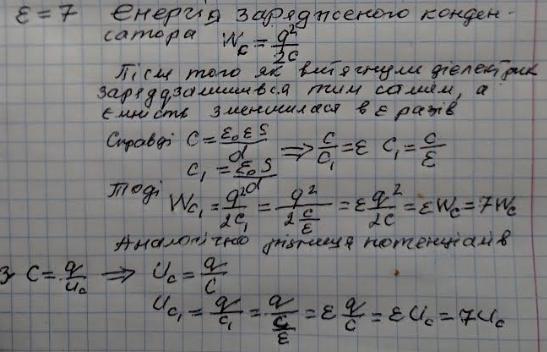 ε = 7 Енергія зарядженого конден-
сатора W_c = q²/2C
Після того як витягнули діелектрик
заряд залишився тим самим, а
ємність зменшилася в ε разів
Справді C = ε₀εS/d ⟹ C/C₁ = ε C₁ = C/ε
C₁ = ε₀S/d
Тоді W_C₁ = q²/2C₁ = q²/(2 C/ε) = ε q²/2C = εW_C = 7W_C
Аналогічно різниця потенціалів
З C = q/U_C ⟹ U_C = q/C
U_C₁ = q/C₁ = q/(C/ε) = ε q/C = εU_C = 7U_C